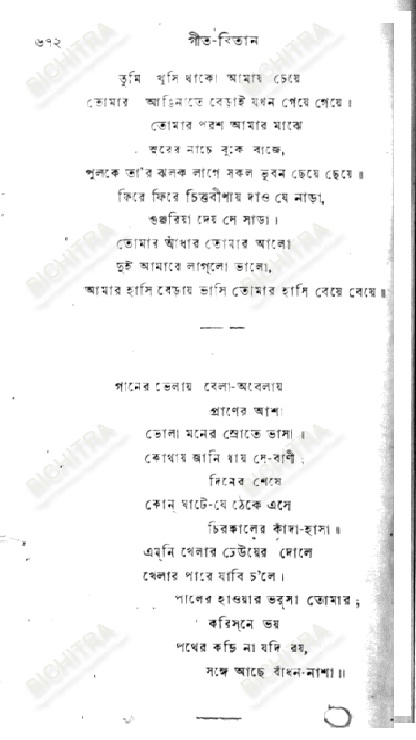 ৬৭২
গীত-বিতান
তুমি খুসি থাকো আমায় চেয়ে
তোমার আঙিনাতে বেড়াই যখন গেয়ে গেয়ে॥
তোমার পরশ আমার মাঝে
সুরের নাচে বুকে বাজে,
পুলকে তা'র ঝলক লাগে সকল ভুবন ছেয়ে ছেয়ে॥
ফিরে ফিরে চিত্তবীণায় দাও যে নাড়া,
গুঞ্জরিয়া দেয় সে সাড়া।
তোমার আঁধার তোমার আলো
দুই আমারে লাগ্‌লো ভালো,
আমার হাসি বেড়ায় ভাসি তোমার হাসি বেয়ে বেয়ে॥
গানের ভেলায় বেলা-অবেলায়
প্রাণের আশা
ভোলা মনের স্রোতে ভাসা॥
কোথায় জানি ধায় সে-বাণী,
দিনের শেষে
কোন্ ঘাটে-যে ঠেকে এসে
চিরকালের কাঁদা-হাসা॥
এম্‌নি খেলার ঢেউয়ের দোলে
খেলার পারে যাবি চ'লে।
পালের হাওয়ার ভর্‌সা তোমার,
করিস্‌নে ভয়
পথের কড়ি না যদি রয়,
সঙ্গে আছে বাঁধন-নাশা॥
BICHITRA